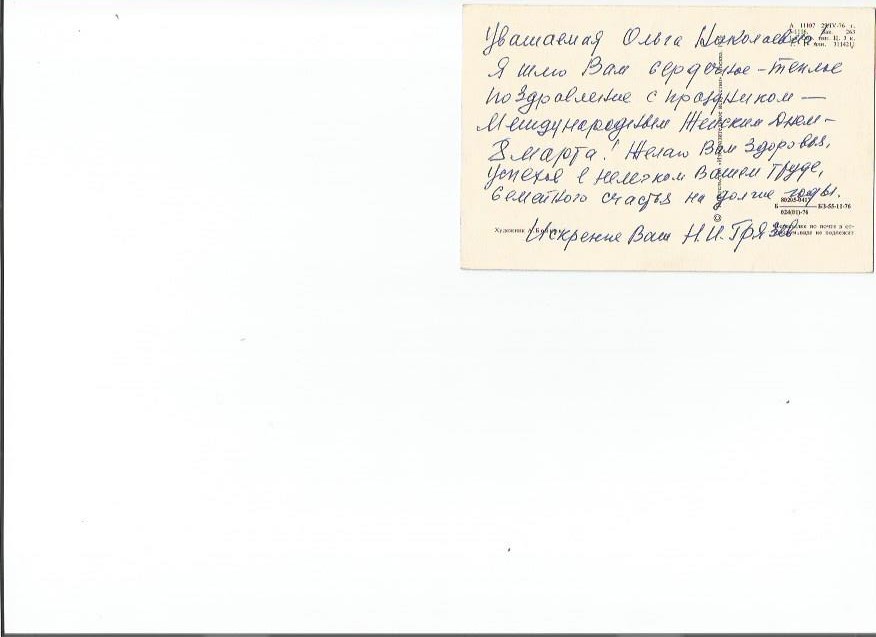 Уважаемая Ольга Николаевна
Я шлю Вам сердечное-теплое
поздравление с праздником —
Международным Женским Днем-
8 марта! Желаю Вам здоровья,
успехов в нелегком Вашем труде,
семейного счастья на долгие годы.
Искренне Ваш Н.И. Грязев
А 11107 29/IV-76 г.
Зак. 263
Ц. 3 к.
Б 80205-041? БЗ-55-11-76
024(01)-76
Художник А.
©